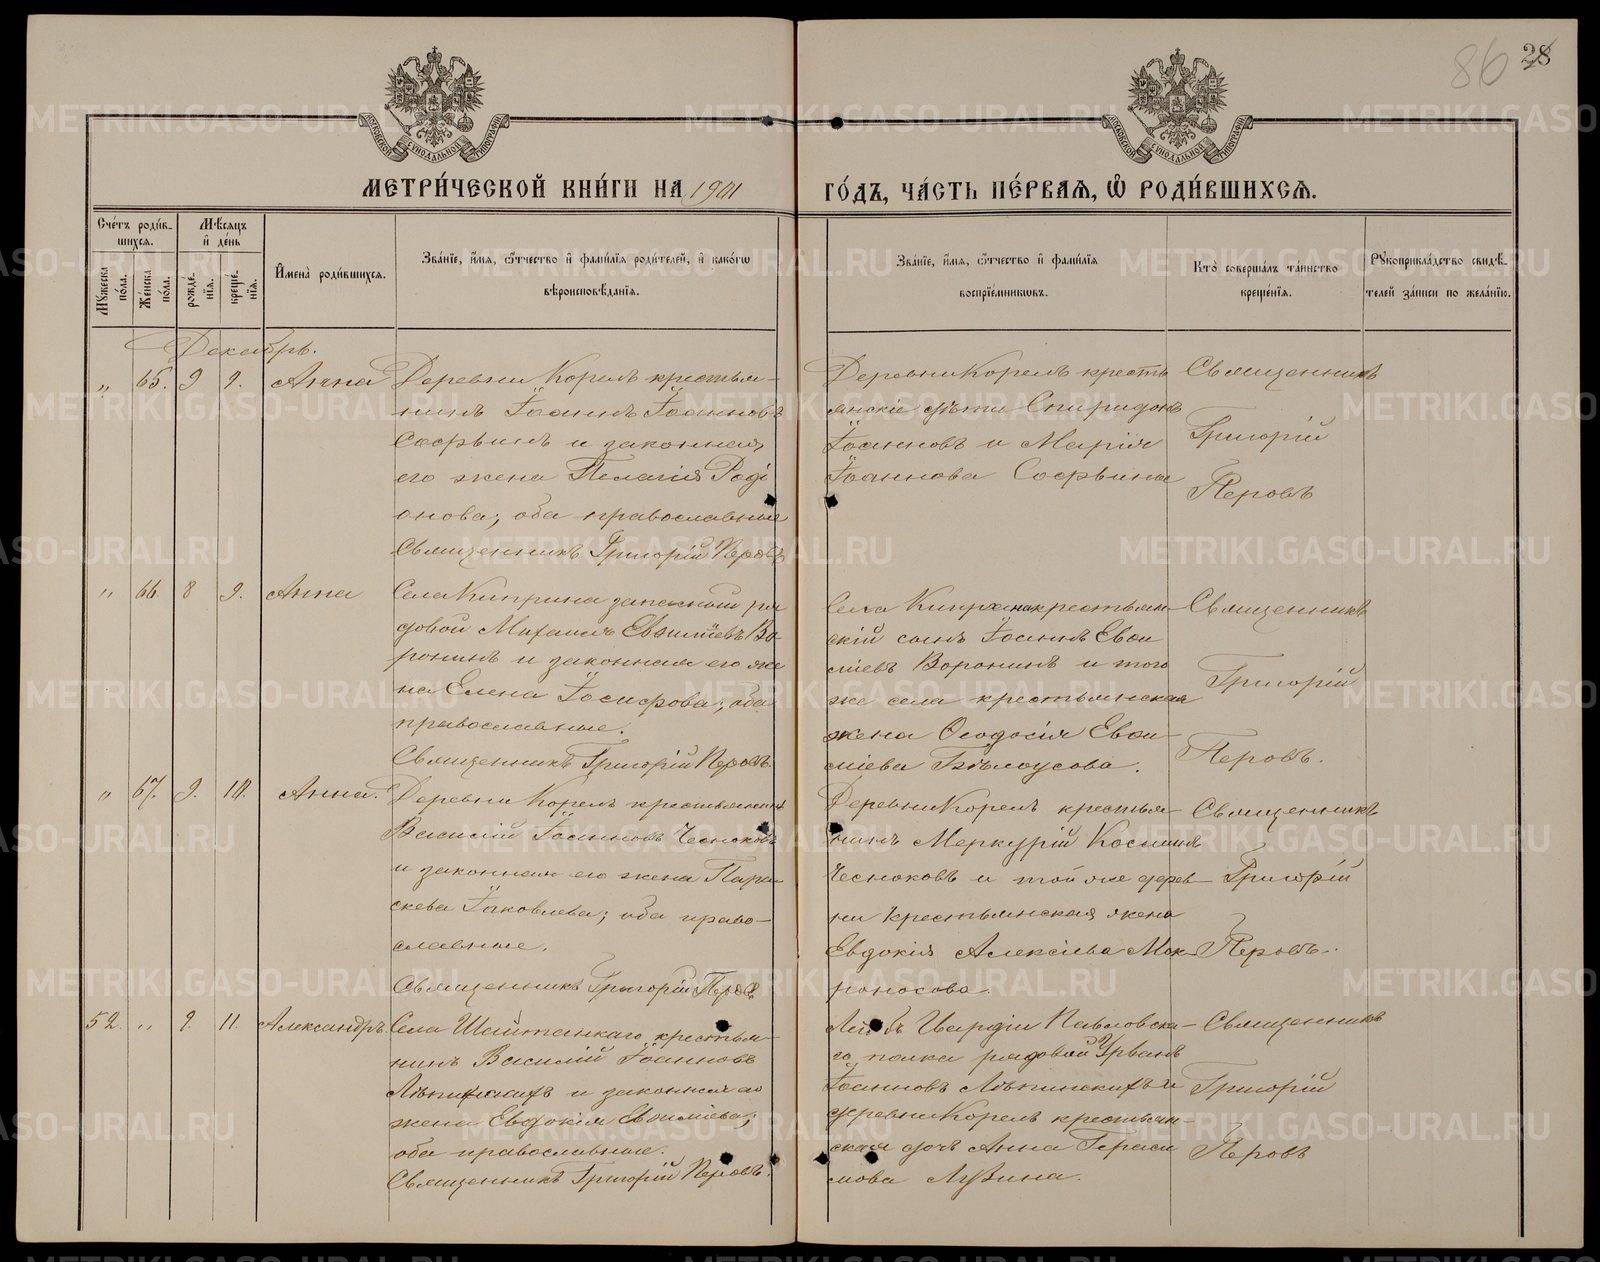 86 28
МОСКОВСКОЙ СУНОДАЛЬНОЙ ТИПОГРАФІИ
МОСКОВСКОЙ СУНОДАЛЬНОЙ ТИПОГРАФІИ
МЕТРИ́ЧЕСКОЙ КНИ́ГИ НА 1901 ГО́ДЪ, ЧА́СТЬ ПЕ́РВАЯ, Ѽ РОДИ́ВШИХСЯ.
Сче́тъ роди́в-
шихся.
Мѣсяцъ
и҆ де́нь
Мꙋжеска по́ла.
Же́нска по́ла.
рожде́-
нїя.
креще́-
нїя.
И҆мена̀ роди́вшихся.
Зва́нїе, и҆́мя, ѻ҆́тчество и҆ фами́лїя роди́телей, и҆ како́гѡ
вѣроисповѣ́данїя.
Зва́нїе, и҆́мя, ѻ҆́тчество и҆ фами́лїя
воспрїе́мникѡвъ.
Кто̀ соверша́лъ та́инство
креще́нїя.
Рꙋкоприкла́дство свидѣ́-
телей за́писи по жела́нїю.
Декабрь.
„ 65. 9 9. Анна
Деревни Корелъ крестья-
нинъ Іоаннъ Іоанновъ
Сосѣвинъ и законная
его жена Пелагія Роді
онова; оба православные
Священникъ Григорій Перовъ
Деревни Корелъ кресть
янскіе дѣти Спиридонъ
Іоанновъ и Марія
Іоаннова Сосѣвина
Священникъ
Григорій
Перовъ
„ 66. 8 9. Анна
Села Киприна запасной ря
довой Михаилъ Евѳиміевъ Во-
ронинъ и законная его же
на Елена Іосифова; оба
православные.
Священникъ Григорій Перовъ.
Села Киприна крестьян-
скій сынъ Іоаннъ Евѳи
міевъ Воронинъ и того
же села крестьянская
жена Ѳеодосія Евѳи-
міева Бѣлоусова.
Священникъ
Григорій
Перовъ.
„ 67. 9. 10. Анна.
Деревни Корелъ крестьянинъ
Василій Іоанновъ Чесноковъ
и законная его жена Пара
скева Іаковлева; оба право-
славные.
Священникъ Григорій Перовъ
Деревни Корелъ крестья-
нинъ Меркурій Косминъ
Чесноковъ и той же дерев-
ни крестьянская жена
Евдокія Алексіева Мок-
роносова.
Священникъ
Григорій
Перовъ.
52. „ 9. 11. Александръ.
Села Шайтанкаго крестья-
нинъ Василій Іоанновъ
Лѣпинскихъ и законная его
жена Евдокія Евѳиміева;
оба православные.
Священникъ Григорій Перовъ.
Лейбъ Гвардіи Павловска-
го полка рядовой Урванъ
Іоанновъ Лѣпинскихъ и
деревни Корелъ крестьян-
ская дочь Анна Гераси
мова Лузина.
Священникъ
Григорій
Перовъ
METRIKI.GASO-URAL.RU